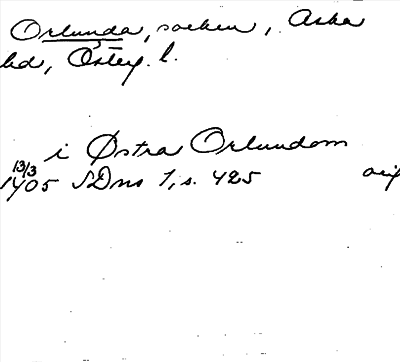 Orlunda, socken, Aska
hd, Österg. l.
i Østra Orlundom
13/3
1405 SDns 1, s. 425 orig